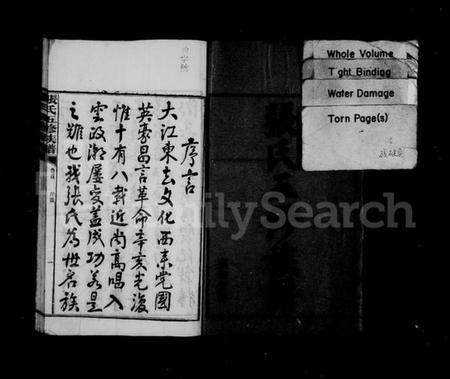 Whole Volume
Tight Binding
Water Damage
Torn Page(s)
序言
大江東去文化西來党國
英豪昌言革命辛亥光復
惟十有八載近尚高唱入
雲政潮屢變蓋成功若是
之難也我張氏為世名族
張氏五修族譜
張氏五修族譜
FamilySearch